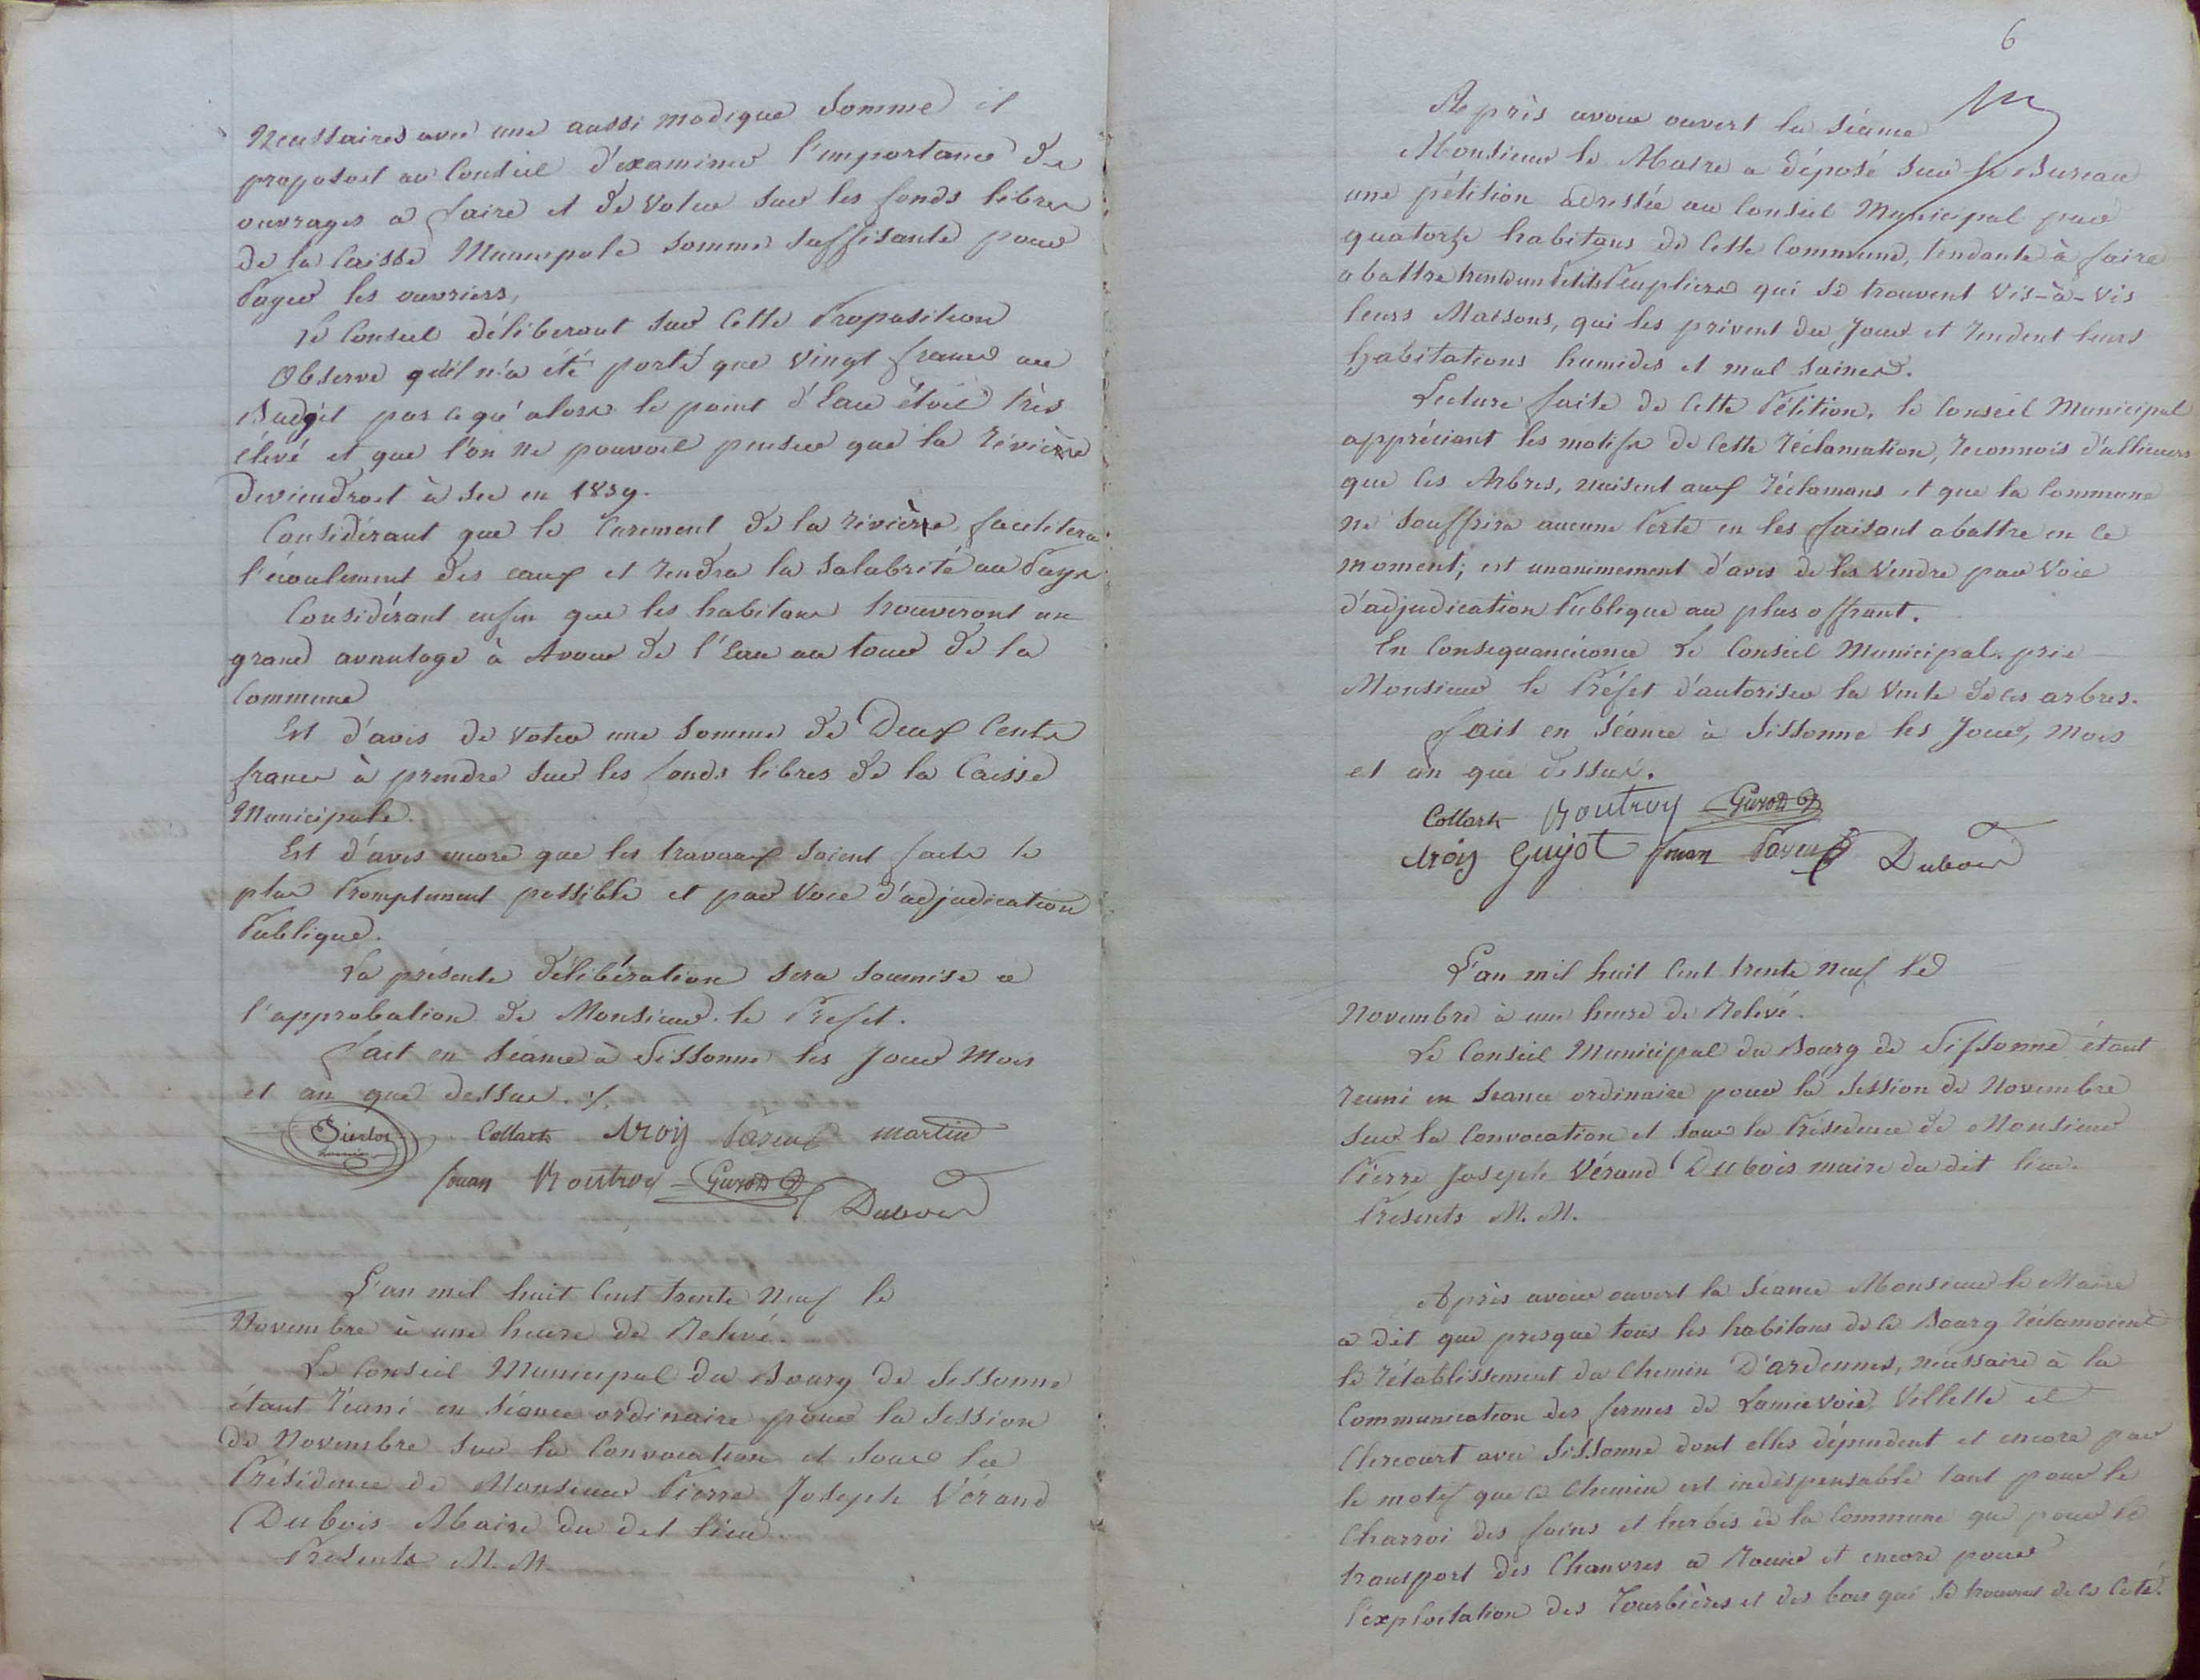 necessaires avec une aussi modique somme il
proposoit au Conseil d'examiner l'importance des
ouvrages a faire et de voter sur les fonds libres
de la Caisse Municipale somme suffisante pour
Payer les ouvriers,
Le Conseil déliberant sur Cette Proposition
Observe qu'il n'a été porté que Vingt francs au
Budget par ce qu'alors le point d'Eau étoit très
élevé et que l'on ne pouvoit penser que la rivière
deviendroit à sec en 1839.
Considérant que le Curement de la rivière facilitera
l'écoulement des eaux et rendra la Salubrité au Pays
Considérant enfin que les habitans trouveront un
grand avantage à Avoir de l'Eau au tour de la
Commune
Est d'avis de voter une somme de Deux Cents
francs à prendre sur les fonds libres de la Caisse
Municipale.
Est d'avis encore que les travaux soient faits le
plus Promptement possible et par Voie d'adjudication
Publique.
La présente délibération sera soumise a
l'approbation de Monsieur le Prefet.
fait en séance à Sissonne les Jour Mois
et an que dessus ./.
Collart Aroy Paseux martin
Jouan Routroy Guyon
Dubois
L'an mil huit Cent trente Neuf le
Novembre à une heure de Relevé.
Le Conseil Municipal du Bourg de Sissonne
étant réuni en séance ordinaire pour la Session
de Novembre sur la Convocation et sous la
Présidence de Monsieur Pierre Joseph Vérand
Dubois Maire du dit lieu.
Présents M. M.
6
Après avoir ouvert la séance
Monsieur le Maire a déposé sur le Bureau
une pétition adressée au Conseil Municipal par
quatorze habitans de Cette Commune, tendante à faire
abattre trente un Petits Peupliers qui se trouvent Vis-à-Vis
leurs Maisons, qui les privent du Jour et rendent leurs
habitations humides et mal saines.
Lecture faite de Cette Pétition, le Conseil Municipal
appréciant les motifs de Cette réclamation, reconnois d'allieurs
que les Arbres, nuisent aux réclamans et que la Commune
ne souffrira aucune Perte en les faisant abattre en Ce
moment; est unanimement d'avis de les Vendre par Voie
d'adjudication Publique au plus offrant.
En Le Conseil Municipal prie
Monsieur le Préfet d'autoriser la Vente de ces arbres.
fait en Séance à Sissonne les Jour, Mois
et an que dessus.
Collart Routroy Guyon
Aroy Guyot Jouan Paseux Dubois
L'an mil huit Cent trente Neuf le
Novembre à une heure de Relevé.
Le Conseil Municipal du Bourg de Sissonne étant
reuni en Séance ordinaire pour la Session de Novembre
sur la Convocation et sous la Présidence de Monsieur
Pierre Joseph Vérand Dubois maire du dit lieu.
Presents M. M.
Après avoir ouvert la Séance Monsieur le Maire
a dit que presque tous les habitans de ce Bourg réclamoient
le rétablissement du Chemin D'ardennes, necessaire à la
Communication des fermes de Villette et
Clercourt avec Sissonne dont elles dépendent et encore par
le motif que ce Chemin est indispensable tant pour le
Charroi des foins et herbes de la Commune que pour le
transport des Chanvres a Rouir et encore pour
l'exploitation des Tourbières et des bois qui se trouvent de ce Coté.